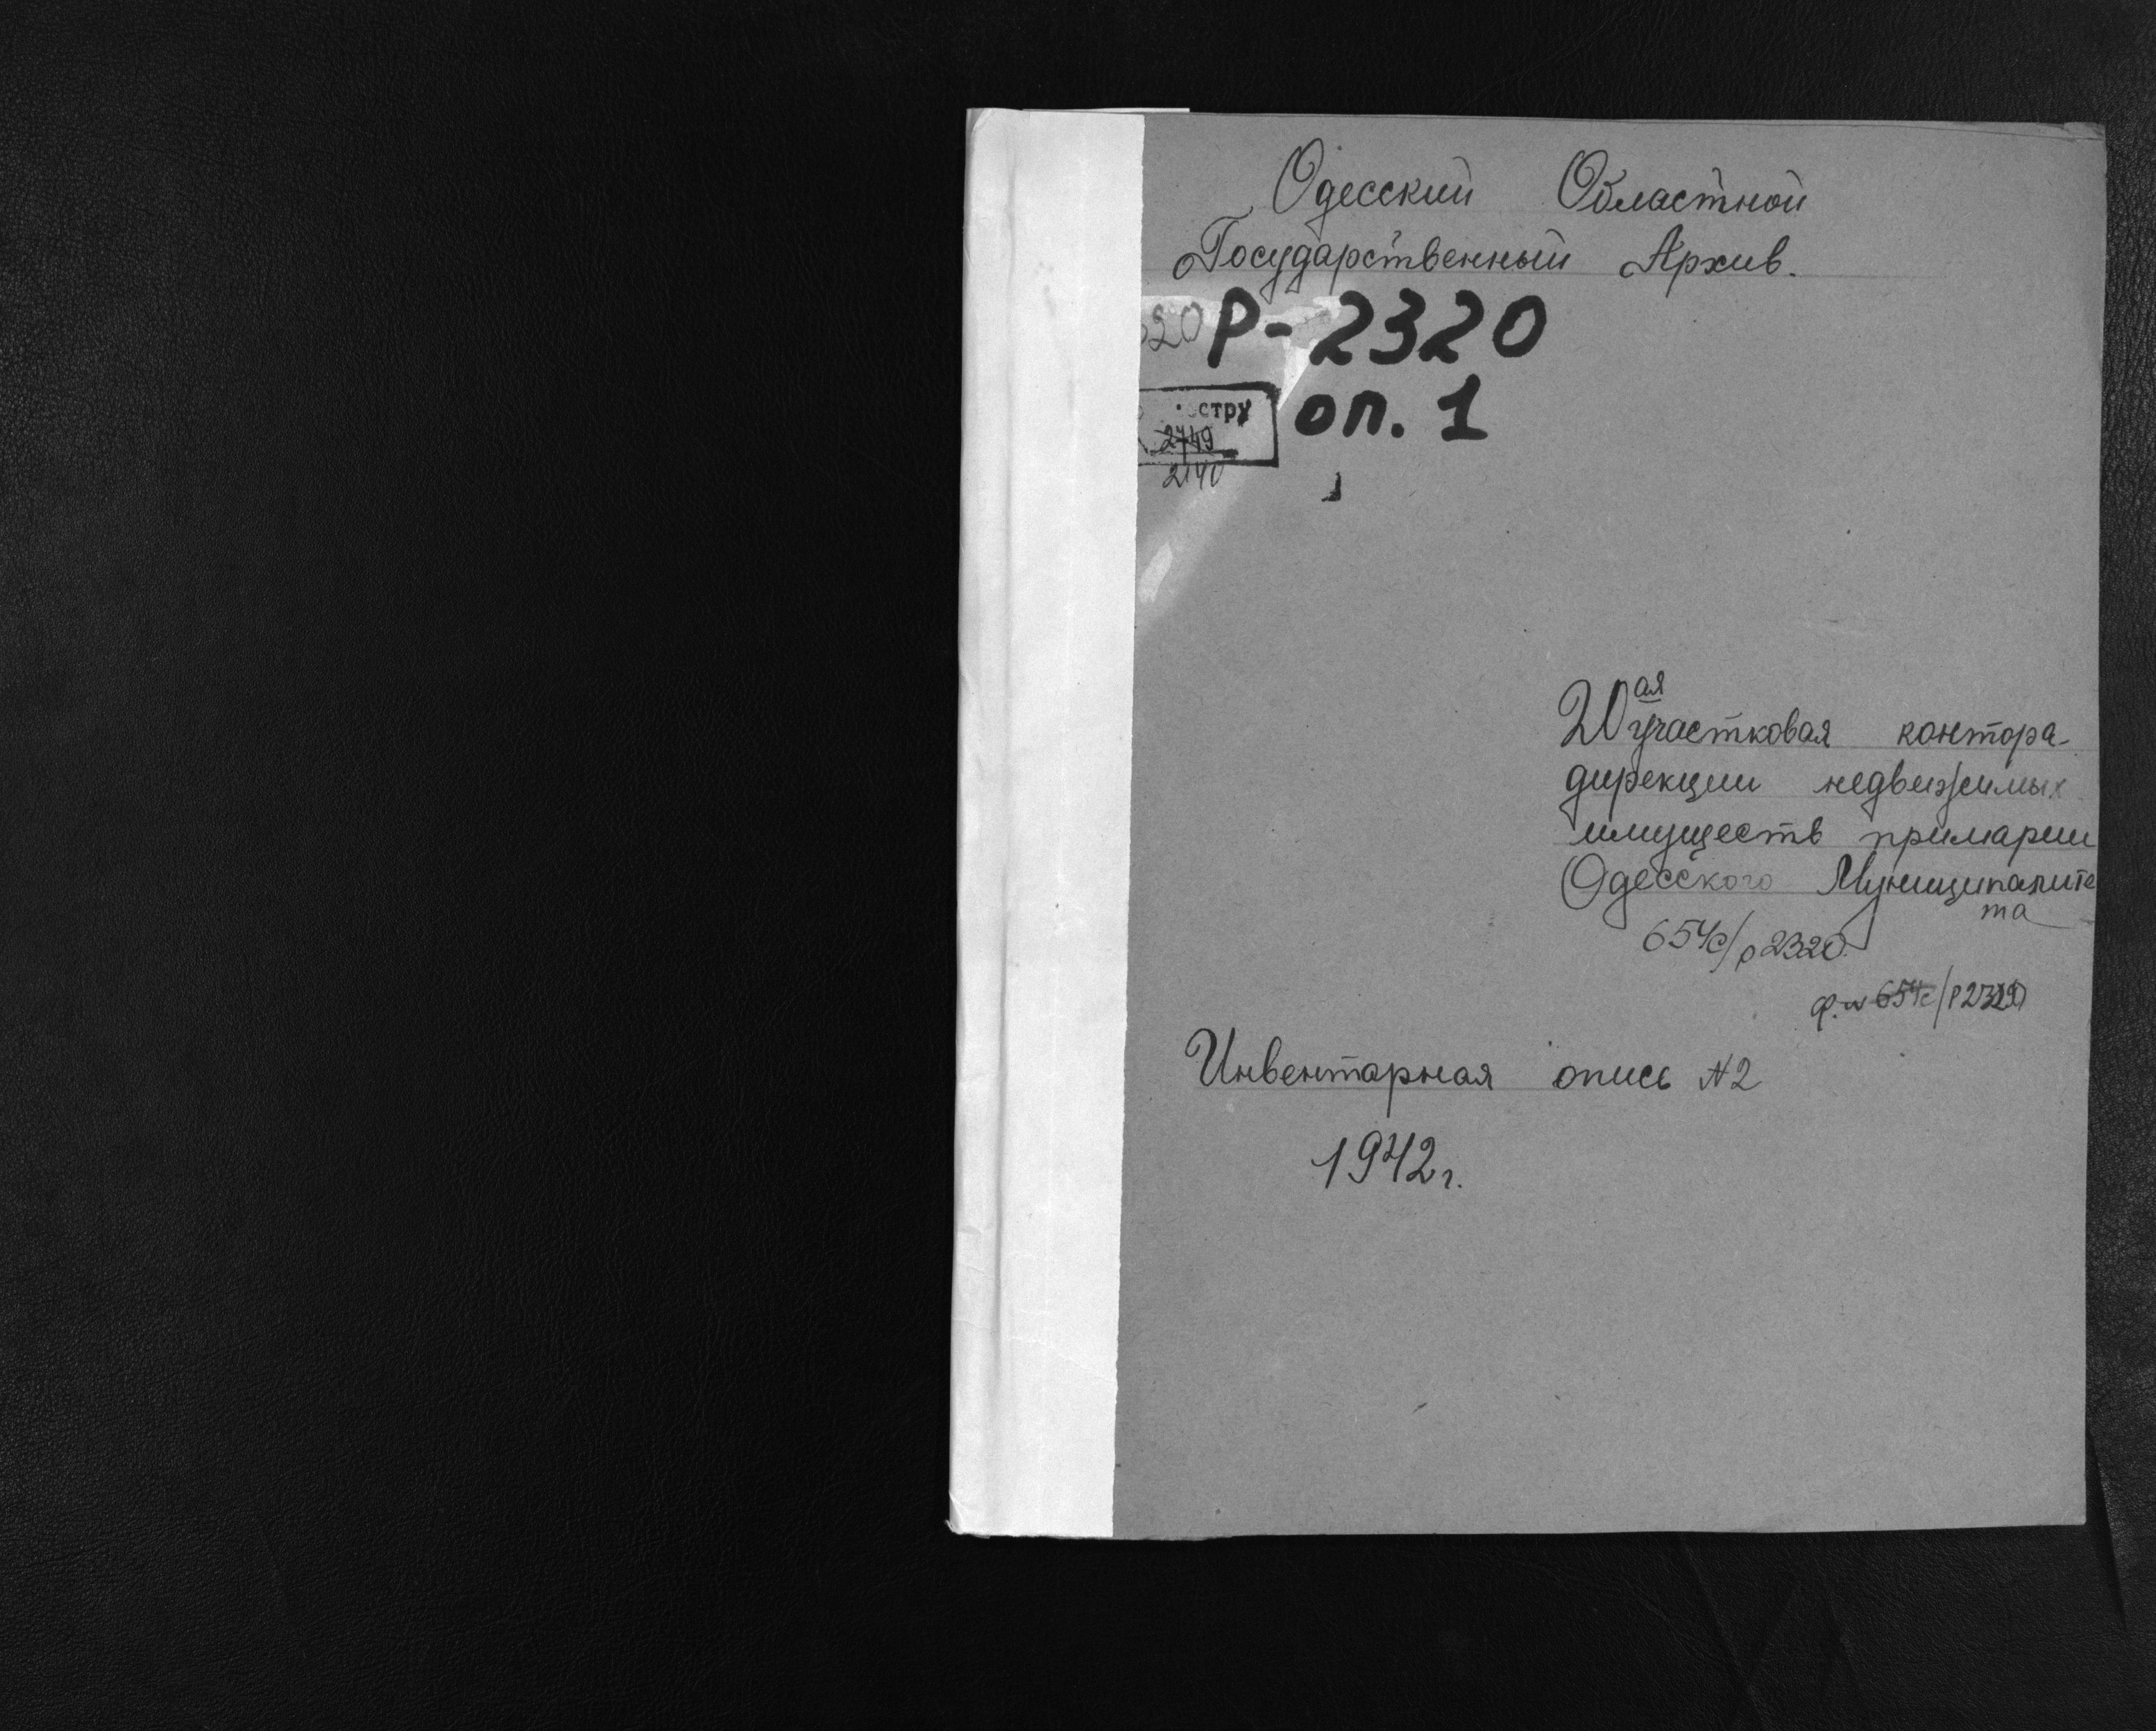 Одесский Областной
Государственный Архив.
Р-2320
оп. 1
2749
2140
20ая участковая контора
дирекции недвижимых
имуществ примарии
Одесского Муниципалите
та
654с/р2320
ф. № 654с/Р2320
Инвентарная опись №2
1942г.